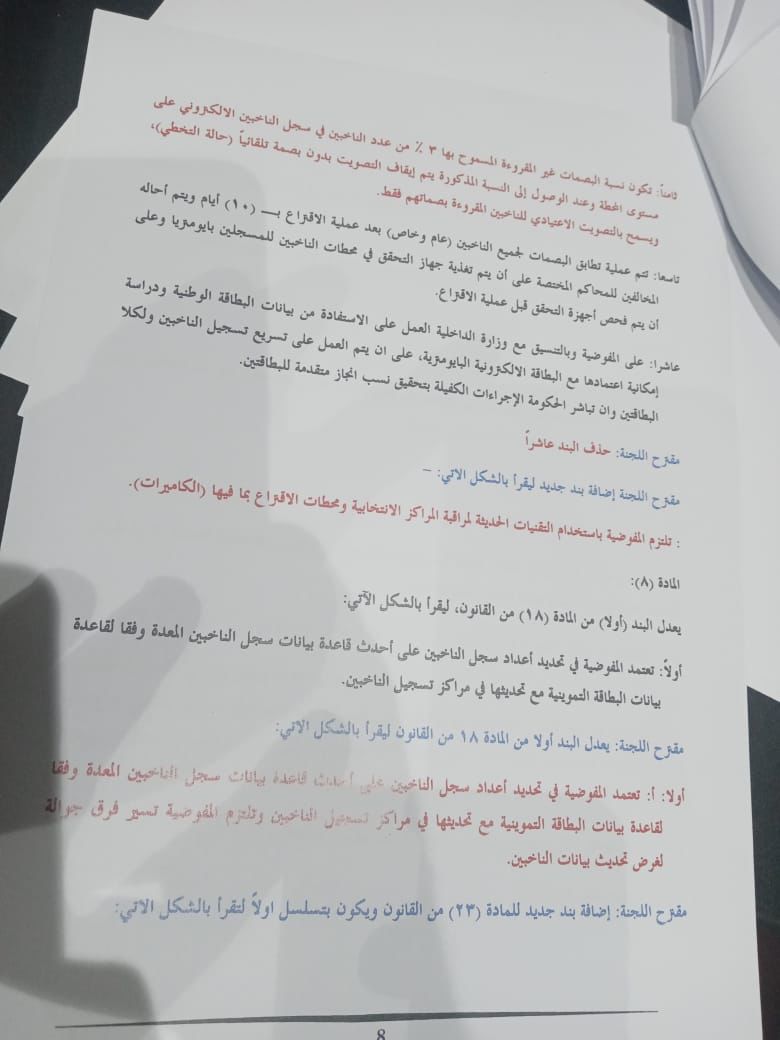 ثامناً: تكون نسبة البصمات غير المقروءة المسموح بها ٣ ٪ من عدد الناخبين في سجل الناخبين الالكتروني على
مستوى المحطة وعند الوصول إلى النسبة المذكورة يتم إيقاف التصويت بدون بصمة تلقائياً (حالة التخطي)،
ويسمح بالتصويت الاعتيادي للناخبين المقروءة بصماتهم فقط.
تاسعا: تتم عملية تطابق البصمات لجميع الناخبين (عام وخاص) بعد عملية الاقتراع بـــ (١٠) أيام ويتم أحاله
المخالفين للمحاكم المختصة على أن يتم تغذية جهاز التحقق في محطات الناخبين للمسجلين بايومتريا وعلى
أن يتم فحص أجهزة التحقق قبل عملية الاقتراع.
عاشرا: على المفوضية وبالتنسيق مع وزارة الداخلية العمل على الاستفادة من بيانات البطاقة الوطنية ودراسة
إمكانية اعتمادها مع البطاقة الالكترونية البايومترية، على ان يتم العمل على تسريع تسجيل الناخبين ولكلا
البطاقتين وان تباشر الحكومة الإجراءات الكفيلة بتحقيق نسب انجاز متقدمة للبطاقتين.
مقترح اللجنة: حذف البند عاشراً
مقترح اللجنة إضافة بند جديد ليقرأ بالشكل الاتي: –
: تلتزم المفوضية باستخدام التقنيات الحديثة لمراقبة المراكز الانتخابية ومحطات الاقتراع بما فيها (الكاميرات).
المادة (٨):
يعدل البند (أولا) من المادة (١٨) من القانون، ليقرأ بالشكل الآتي:
أولاً: تعتمد المفوضية في تحديد أعداد سجل الناخبين على أحدث قاعدة بيانات سجل الناخبين المعدة وفقا لقاعدة
بيانات البطاقة التموينية مع تحديثها في مراكز تسجيل الناخبين.
مقترح اللجنة: يعدل البند أولا من المادة ١٨ من القانون ليقرأ بالشكل الاتي:
أولا: أ: تعتمد المفوضية في تحديد أعداد سجل الناخبين على أحدث قاعدة بيانات سجل الناخبين المعدة وفقا
لقاعدة بيانات البطاقة التموينية مع تحديثها في مراكز تسجيل الناخبين وتلتزم المفوضية تسير فرق جوالة
لغرض تحديث بيانات الناخبين.
مقترح اللجنة: إضافة بند جديد للمادة (٢٣) من القانون ويكون بتسلسل اولاً لتقرأ بالشكل الاتي:
8